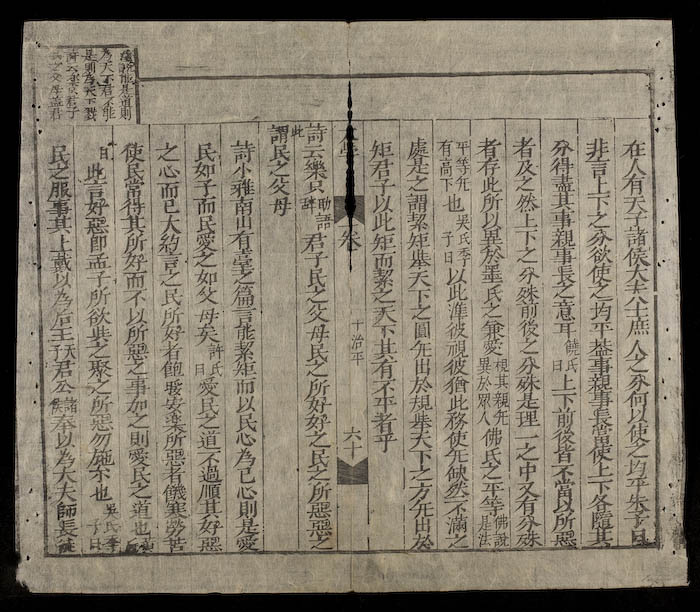 在人有天子諸侯大夫士庶人之分何以使之均平朱子曰
非言上下之分欲使之均平葢事親事長當使上下各隨其
分得盡其事親事長之意耳饒氏曰上下前後皆不當以所惡
者及之然上下之分殊前後之分殊是理一之中又有分殊
者存此所以異於墨氏之兼愛視其親旡異於眾人佛氏之平等佛說是法
平等旡有高下也吳氏季子曰以此準彼視彼猶此務使旡缺然不滿之
處是之謂絜矩舉天下之圓旡出於規舉天下之方旡出於
矩君子以此矩而絜之天下其有不平者乎
卷 十治平 六十
詩云樂只助語辭君子民之父母民之所好好之民之所惡惡之
此謂民之父母
詩小雅南山有臺之篇言能絜矩而以民心為己心則是愛
民如子而民愛之如父母矣許氏曰愛民之道不過順其好惡
之心而已大約言之民所好者飽煖安楽所惡者饑寒勞苦
使民常得其所好而不以所惡之事加之則愛民之道也
曰此言好惡即孟子所欲與之聚之所惡勿施尓也吳氏季子曰
民之服事其上戴以為后王天君公諸侯奉以為大夫師長
能是道則
為天下君不能
是則為天下戮
詩云樂只君子
民之父母